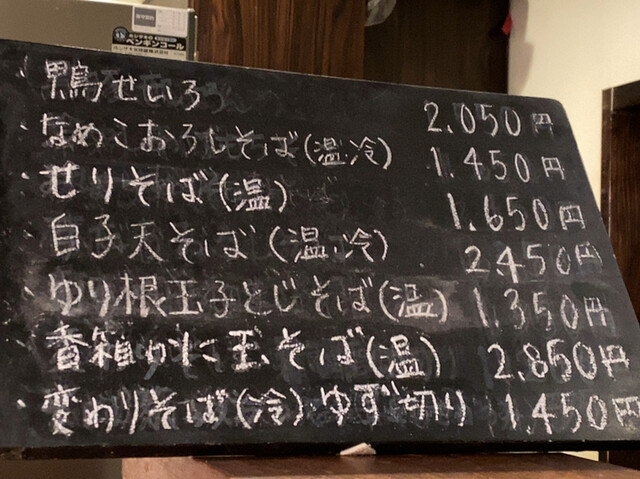 ホシザキの
ペンギンコール
ホシザキ京阪株式会社
・鴨せいろ 2.050円
・なめこおろしそば(温.冷) 1.450円
・せりそば(温) 1.650円
・白子天そば(温.冷) 2.450円
・ゆり根玉子とじそば(温) 1.350円
・香箱かに玉そば(温) 2.850円
・変わりそば(冷)ゆず切り 1.450円